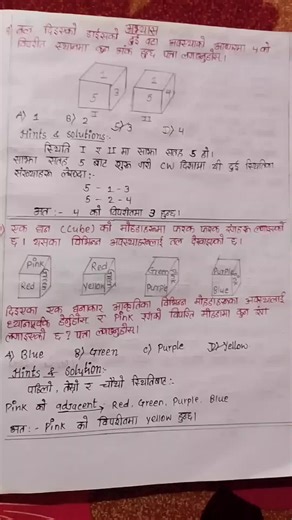 अभ्यास
तल दिइएको डाईसको दुई वटा अवस्थाको आधारमा 4 को
विपरीत सतहमा कुन अंक हुन्छ, पत्ता लगाउनुहोस्।
1 5 3
1 4 5
I II
A) 1 B) 2 C) 3 D) 4
Hints & solutions:-
स्थिति I र II मा साझा सतह 5 हो।
साझा सतह 5 बाट शुरू गरी CW दिशामा यी दुई स्थितिका
संख्याहरू लेख्दा:-
5 - 1 - 3
5 - 2 - 4
अतः - 4 को विपरीतमा 3 हुन्छ।
एक घन (Cube) को मोहडाहरूमा फरक फरक रंगहरू लगाइएको
छ। यसका विभिन्न अवस्थाहरूलाई तल देखाइएको छ।
Pink Red
Red Yellow
Green Purple
Purple Blue
दिइएका एक घनाकार आकृतिका विभिन्न मोहडाहरूका अवस्थालाई
ध्यानपूर्वक हेर्नुहोस् र Pink रंगको विपरित मोहडामा कुन रंग
लगाइएको छ? पत्ता लगाउनुहोस्।
A) Blue B) Green C) Purple D) Yellow
Hints & Solution:-
पहिलो, तेस्रो र चौथो स्थितिबाट:-
Pink को adjacent → Red, Green, Purple, Blue
अतः - Pink को विपरीतमा yellow हुन्छ।